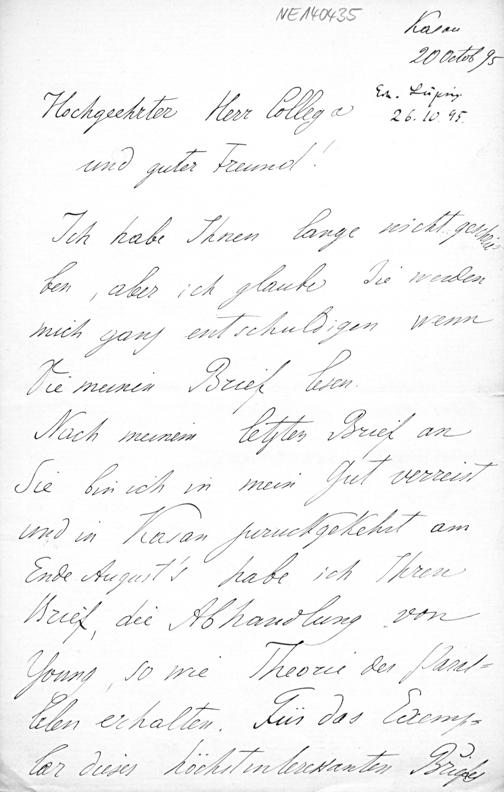 NE140435
Kasan
20 Octob 95
Leipzig
26. 10. 95.
Hochgeehrter Herr Collega
und guter Freund!
Ich habe Ihnen lange nicht geschrie-
ben, aber ich glaube Sie werden
mich ganz entschuldigen wenn
Sie meinen Brief lesen.
Nach meinem letzten Brief an
Sie bin ich in mein Gut verreist
und in Kasan zuruckgekehrt am
Ende August's habe ich Ihren
Brief, die Abhandlung von
Young, so wie Theorie der Paral-
lelen erhalten. Für das Exemp-
lar dieses höchstinteressanten